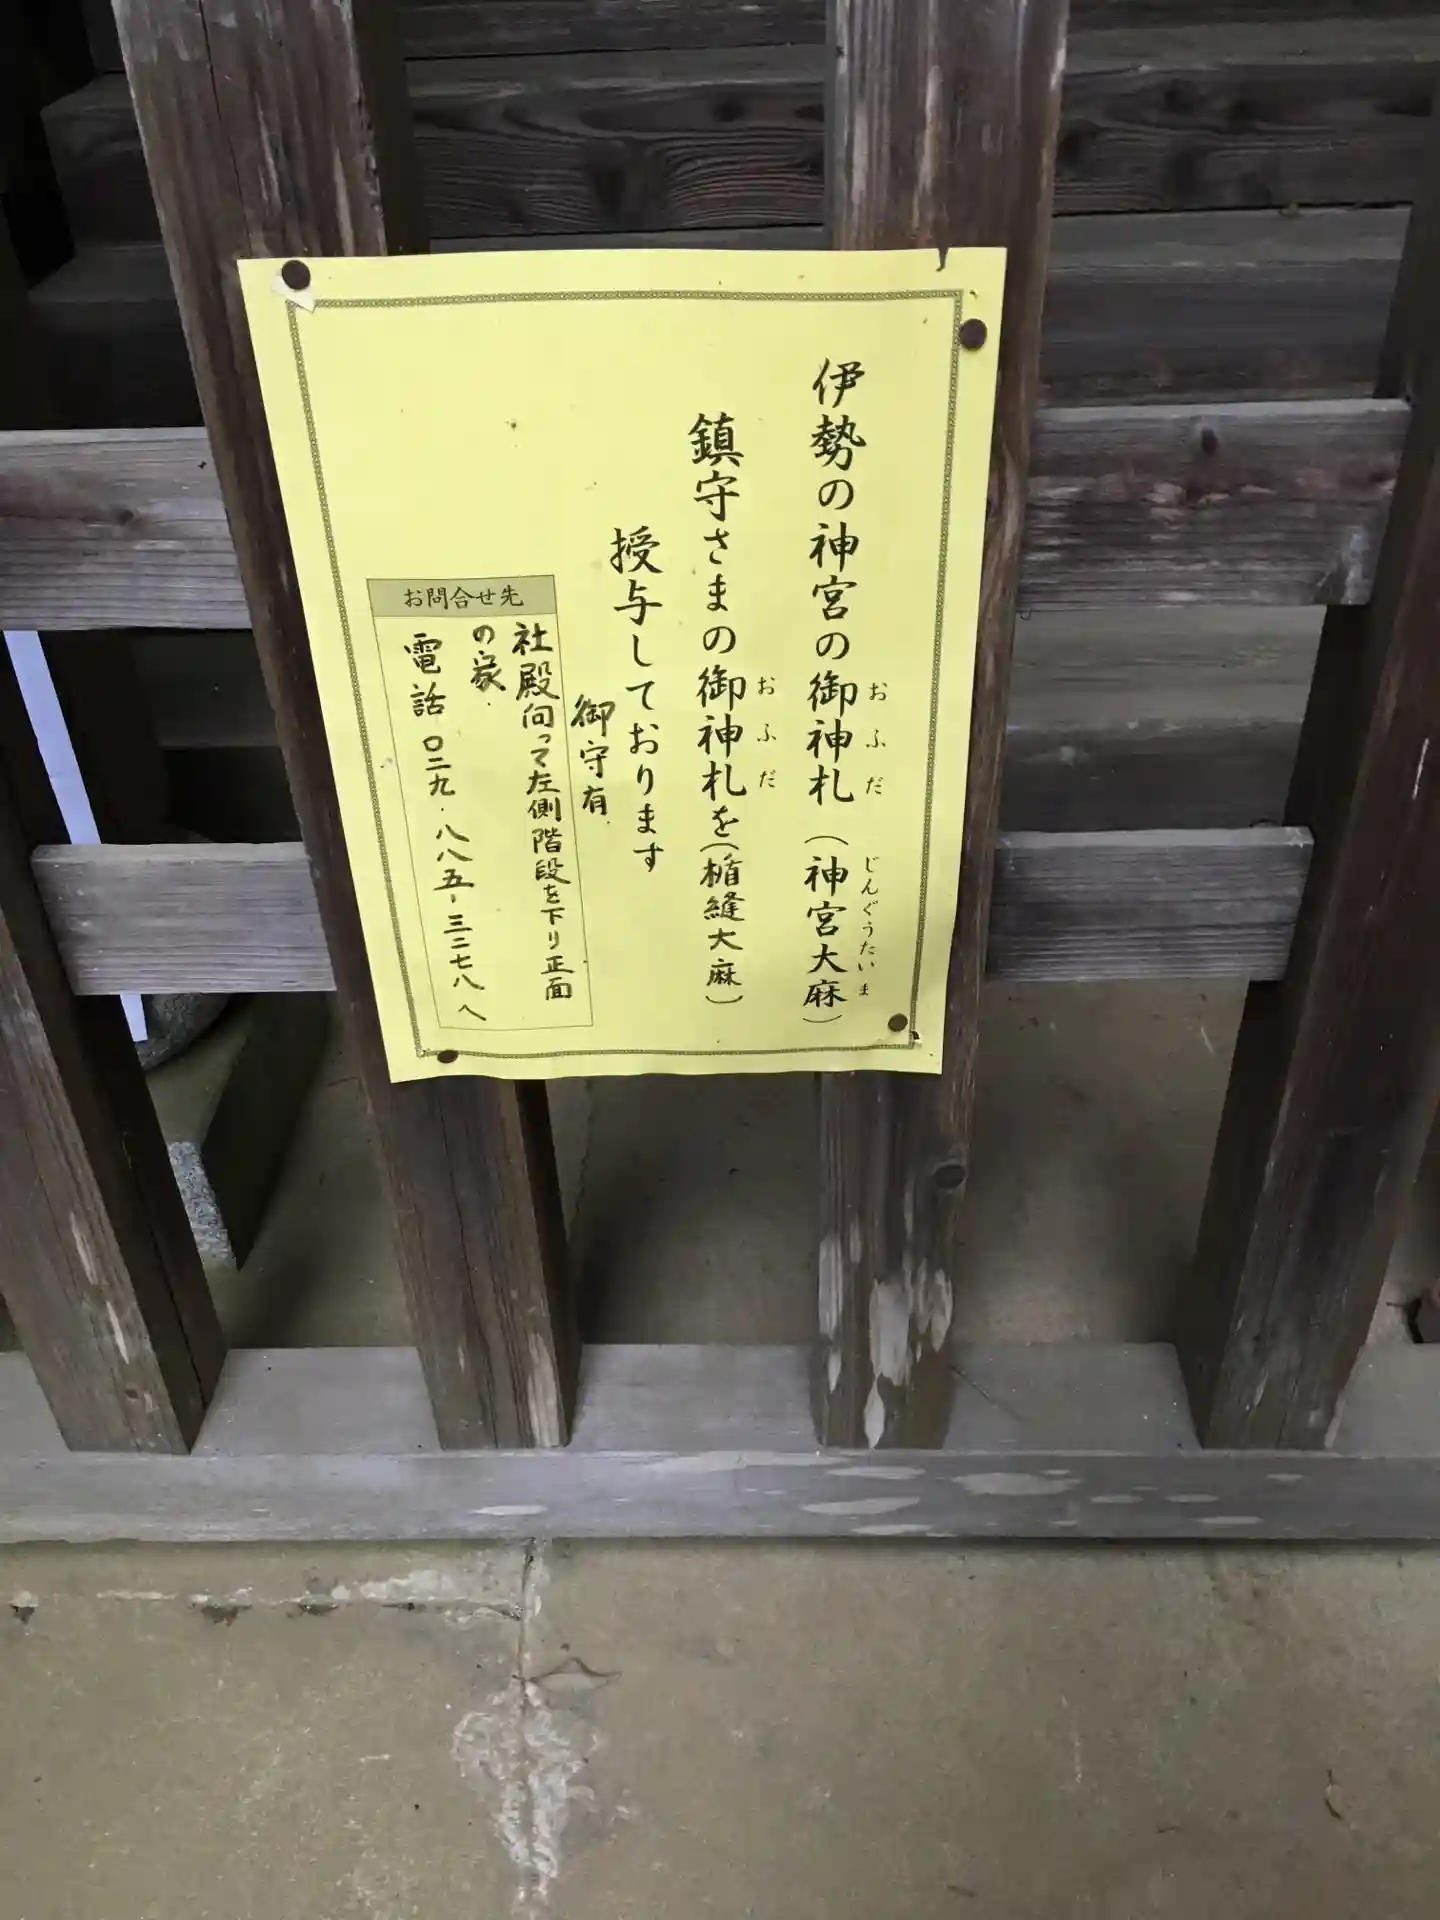 伊勢の神宮の御神札（神宮大麻）
おふだ
じんぐうたいま
鎮守さまの御神札を（楯縫大麻）
おふだ
授与しております
御守有
お問合せ先
社殿向って左側階段を下り正面
の家
電話〇二九・八八五-三二七八へ